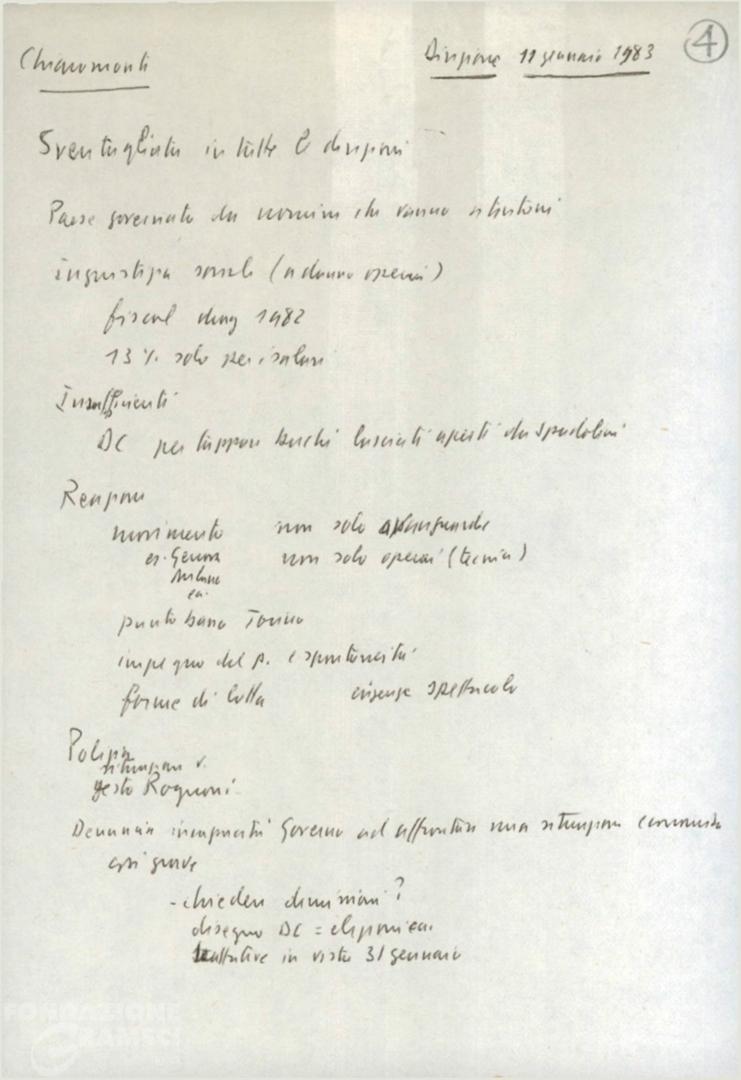 Chiaromonti
Direzione 11 gennaio 1983
4
Sventagliata in tutte le direzioni
Paese governato da uomini che vanno a tentoni
ingiustizia sociale (a danno operai)
fiscal drag 1982
13% solo per i salari
Insufficienti
DC per tappare buchi lasciati aperti da Spadolini
Reazioni
movimento non solo avanguardie
es. Genova non solo operai (tecnici)
Milano
ecc.
punto basso Torino
impegno del p. e spontaneità
forme di lotta spettacolo
Polizia
situazione
gesto Rognoni
Denuncia incapacità Governo ad affrontare una situazione economica
così grave
- chiedere dimissioni?
disegno DC = elezioni ecc.
trattative in vista 31 gennaio
FONDAZIONE
GRAMSCI